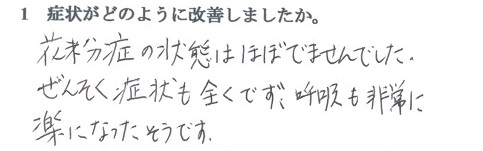 1 症状がどのように改善しましたか。
花粉症の状態はほぼでませんでした.
ぜんそく症状も全くでず、呼吸も非常に
楽になったそうです.